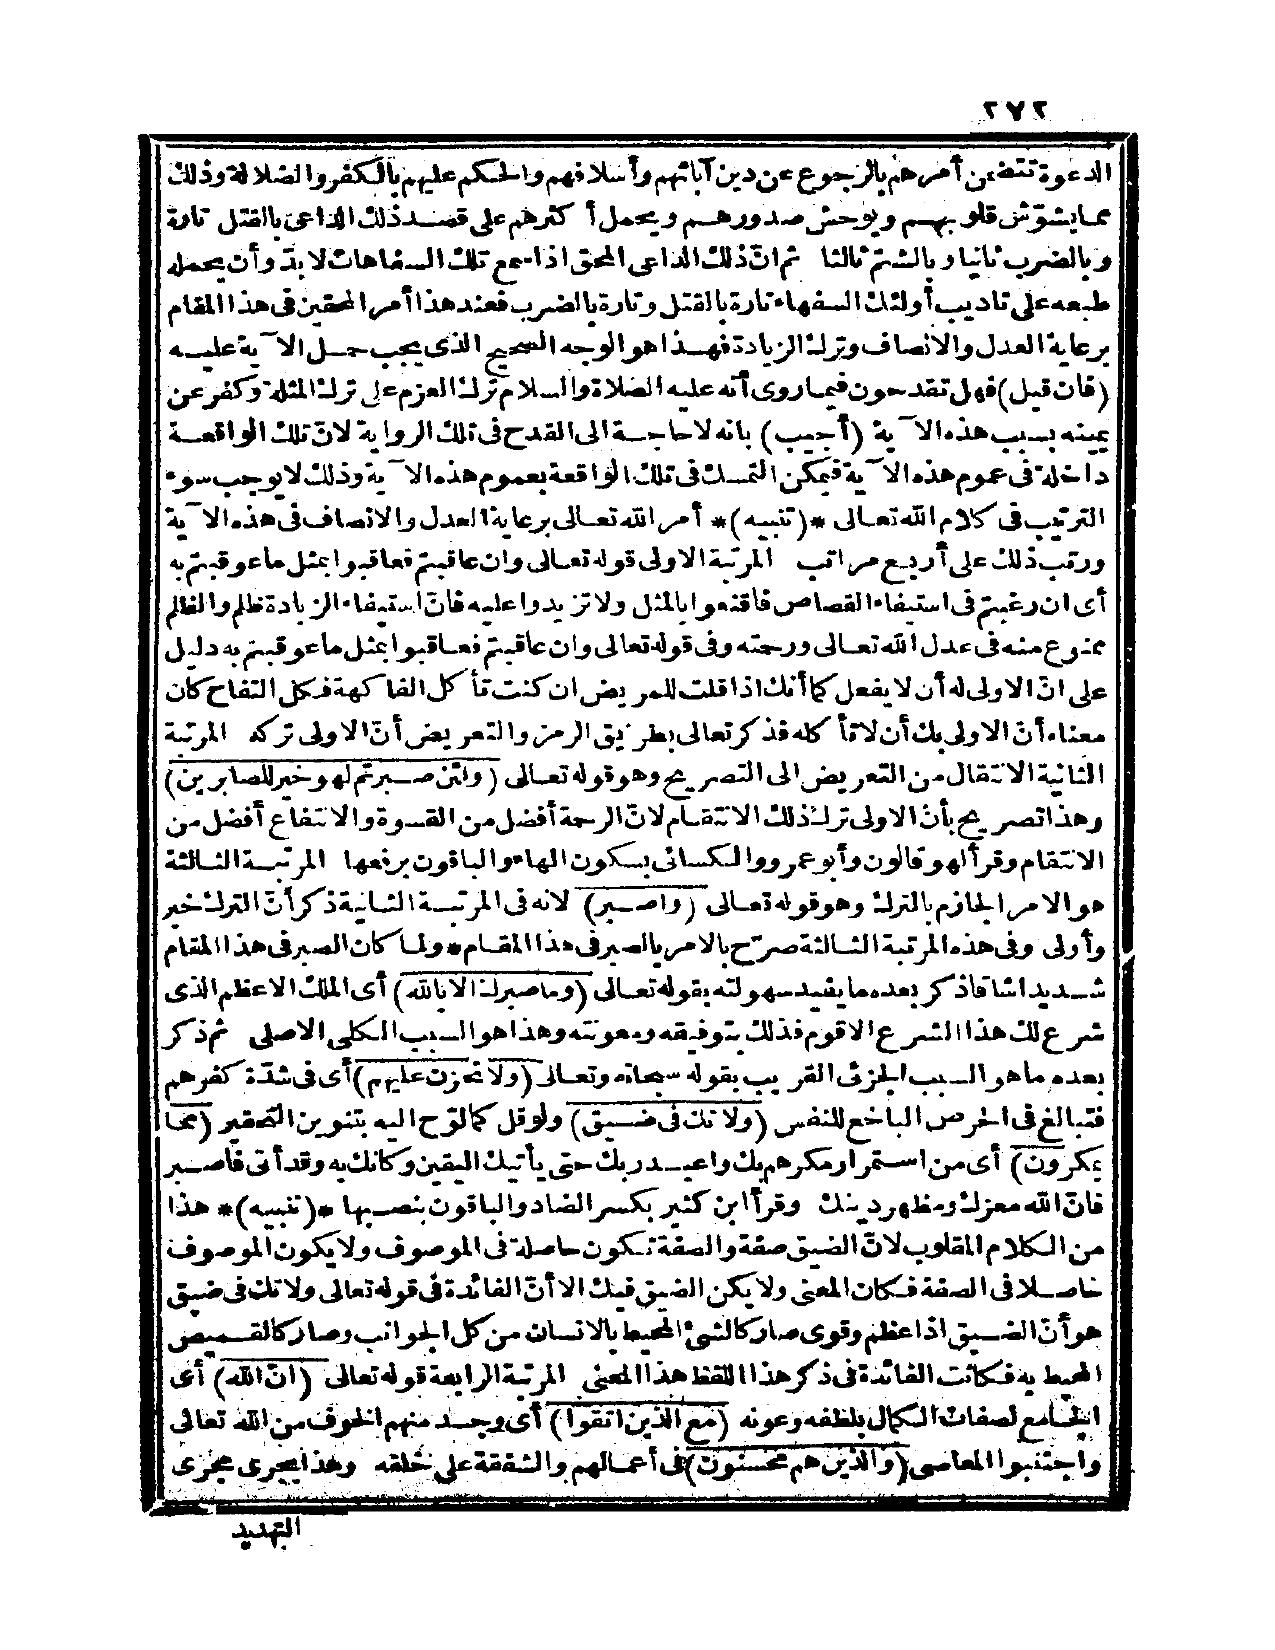 ٢٧٢
الدعوة تتضمن أمرهم بالرجوع عن دين آبائهم وأسلافهم والحكم عليهم بالكفر والضلالة وذلك
مما يشوّش قلوبهم ويوحش صدورهم ويحمل أكثرهم على قصد ذلك الداعى بالقتل تارة
وبالضرب ثانيا وبالشتم ثالثا ثم انّ ذلك الداعى المحق اذا سمع تلك السفاهات لا بدّ وأن يحمله
طبعه على تاديب أولئك السفهاء تارة بالقتل وتارة بالضرب فعند هذا أمر المحقين فى هذا المقام
برعاية العدل والانصاف وترك الزيادة فهذا هو الوجه الصحيح الذى يجب حمل الآية عليه
(فان قيل) فهل تقدحون فيما روى أنه عليه الصلاة والسلام ترك العزم على ترك المثلة وكفر عن
يمينه بسبب هذه الآية (أجيب) بانه لا حاجة الى القدح فى تلك الرواية لانّ تلك الواقعة
داخلة فى عموم هذه الآية فيمكن التمسك فى تلك الواقعة بعموم هذه الآية وذلك لا يوجب سوء
الترتيب فى كلام الله تعالى *(تنبيه)* أمر الله تعالى برعاية العدل والانصاف فى هذه الآية
ورتب ذلك على أربع مراتب المرتبة الاولى قوله تعالى وان عاقبتم فعاقبوا بمثل ما عوقبتم به
أى ان رغبتم فى استيفاء القصاص فاقنعوا بالمثل ولا تزيدوا عليه فانّ استيفاء الزيادة ظلم والظلم
ممنوع منه فى عدل الله تعالى ورحمته وفى قوله تعالى وان عاقبتم فعاقبوا بمثل ما عوقبتم به دليل
على انّ الاولى له أن لا يفعل كما أنك اذا قلت للمريض ان كنت تأكل الفاكهة فكل التفاح كان
معناه أنّ الاولى بك أن لا تأكله فذكر تعالى بطريق الرمز والتعريض أنّ الاولى تركه المرتبة
الثانية الانتقال من التعريض الى التصريح وهو قوله تعالى (ولئن صبرتم لهو خير للصابرين)
وهذا تصريح بأنّ الاولى ترك ذلك الانتقام لانّ الرحمة أفضل من القسوة والانتفاع أفضل من
الانتقام وقرأ لهو قالون وأبو عمرو والكسائى بسكون الهاء والباقون برفعها المرتبة الثالثة
هو الامر الجازم بالترك وهو قوله تعالى (واصبر) لانه فى المرتبة الثانية ذكر أنّ الترك خير
وأولى وفى هذه المرتبة الثالثة صرّح بالامر بالصبر فى هذا المقام * ولما كان الصبر فى هذا المقام
شديدا شاقا ذكر بعده ما يفيد سهولته بقوله تعالى (وما صبرك الا بالله) أى الملك الاعظم الذى
شرع لك هذا الشرع الاقوم فذلك بتوفيقه ومعونته وهذا هو السبب الكلى الاصلى ثم ذكر
بعده ما هو السبب الجزئى القريب بقوله سبحانه وتعالى (ولا تحزن عليهم) أى فى شدّة كفرهم
فتبالغ فى الحرص الباخع للنفس (ولا تك فى ضيق) ولو قل كما لوّح اليه بتنوين التصغير (مما
يمكرون) أى من استمرار مكرهم بك واعبد ربك حتى يأتيك اليقين وكانك به وقد أتى فاصبر
فانّ الله معزك ومظهر دينك وقرأ ابن كثير بكسر الضاد والباقون بنصبها *(تنبيه)* هذا
من الكلام المقلوب لانّ الضيق صفة والصفة تكون حاصلة فى الموصوف ولا يكون الموصوف
حاصلا فى الصفة فكان المعنى ولا يكن الضيق فيك الا أنّ الفائدة فى قوله تعالى ولا تك فى ضيق
هو أنّ الضيق اذا عظم وقوى صار كالشئ المحيط بالانسان من كل الجوانب وصار كالقميص
المحيط به فكانت الفائدة فى ذكر هذا اللفظ هذا المعنى المرتبة الرابعة قوله تعالى (انّ الله) أى
الجامع لصفات الكمال بلطفه وعونه (مع الذين اتقوا) أى وجد منهم الخوف من الله تعالى
واجتنبوا المعاصى (والذين هم محسنون) فى أعمالهم والشفقة على خلقه وهذا يجرى مجرى
التهديد